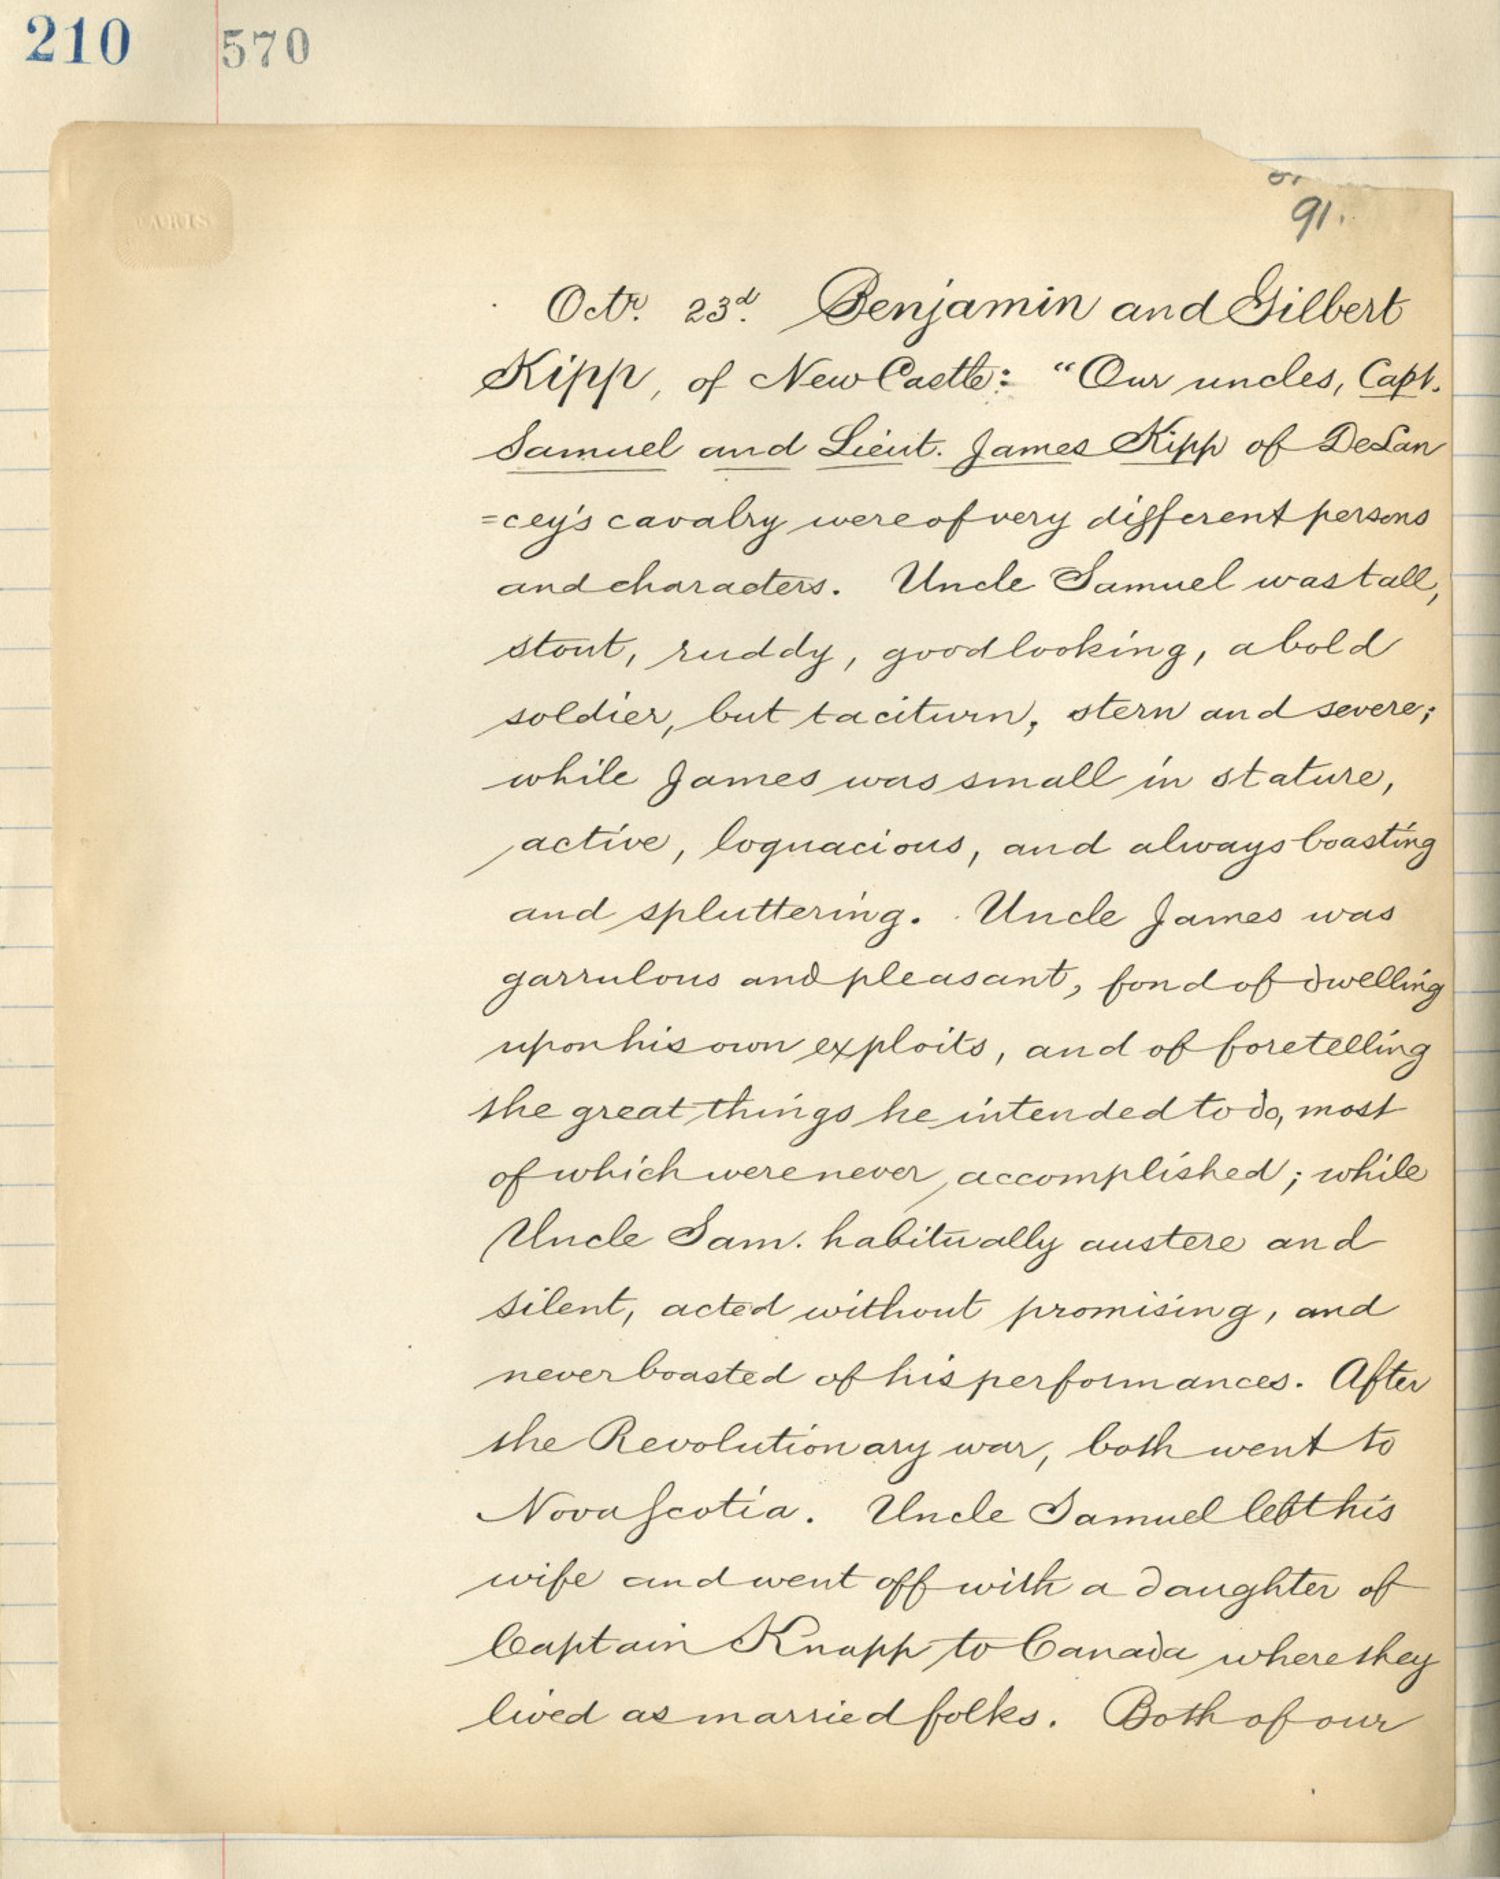 210 570
91.
Octr. 23d. Benjamin and Gilbert
Kipp, of New Castle: "Our uncles, Capt.
Samuel and Lieut. James Kipp of DeLan
=cey's cavalry were of very different persons
and characters. Uncle Samuel was tall,
stout, ruddy, good looking, a bold
soldier, but taciturn, stern and severe;
while James was small in stature,
active, loquacious, and always boasting
and spluttering. Uncle James was
garrulous and pleasant, fond of dwelling
upon his own exploits, and of foretelling
the great things he intended to do, most
of which were never accomplished; while
Uncle Sam. habitually austere and
silent, acted without promising, and
never boasted of his performances. After
the Revolutionary war, both went to
Nova Scotia. Uncle Samuel left his
wife and went off with a daughter of
Captain Knapp to Canada where they
lived as married folks. Both of our